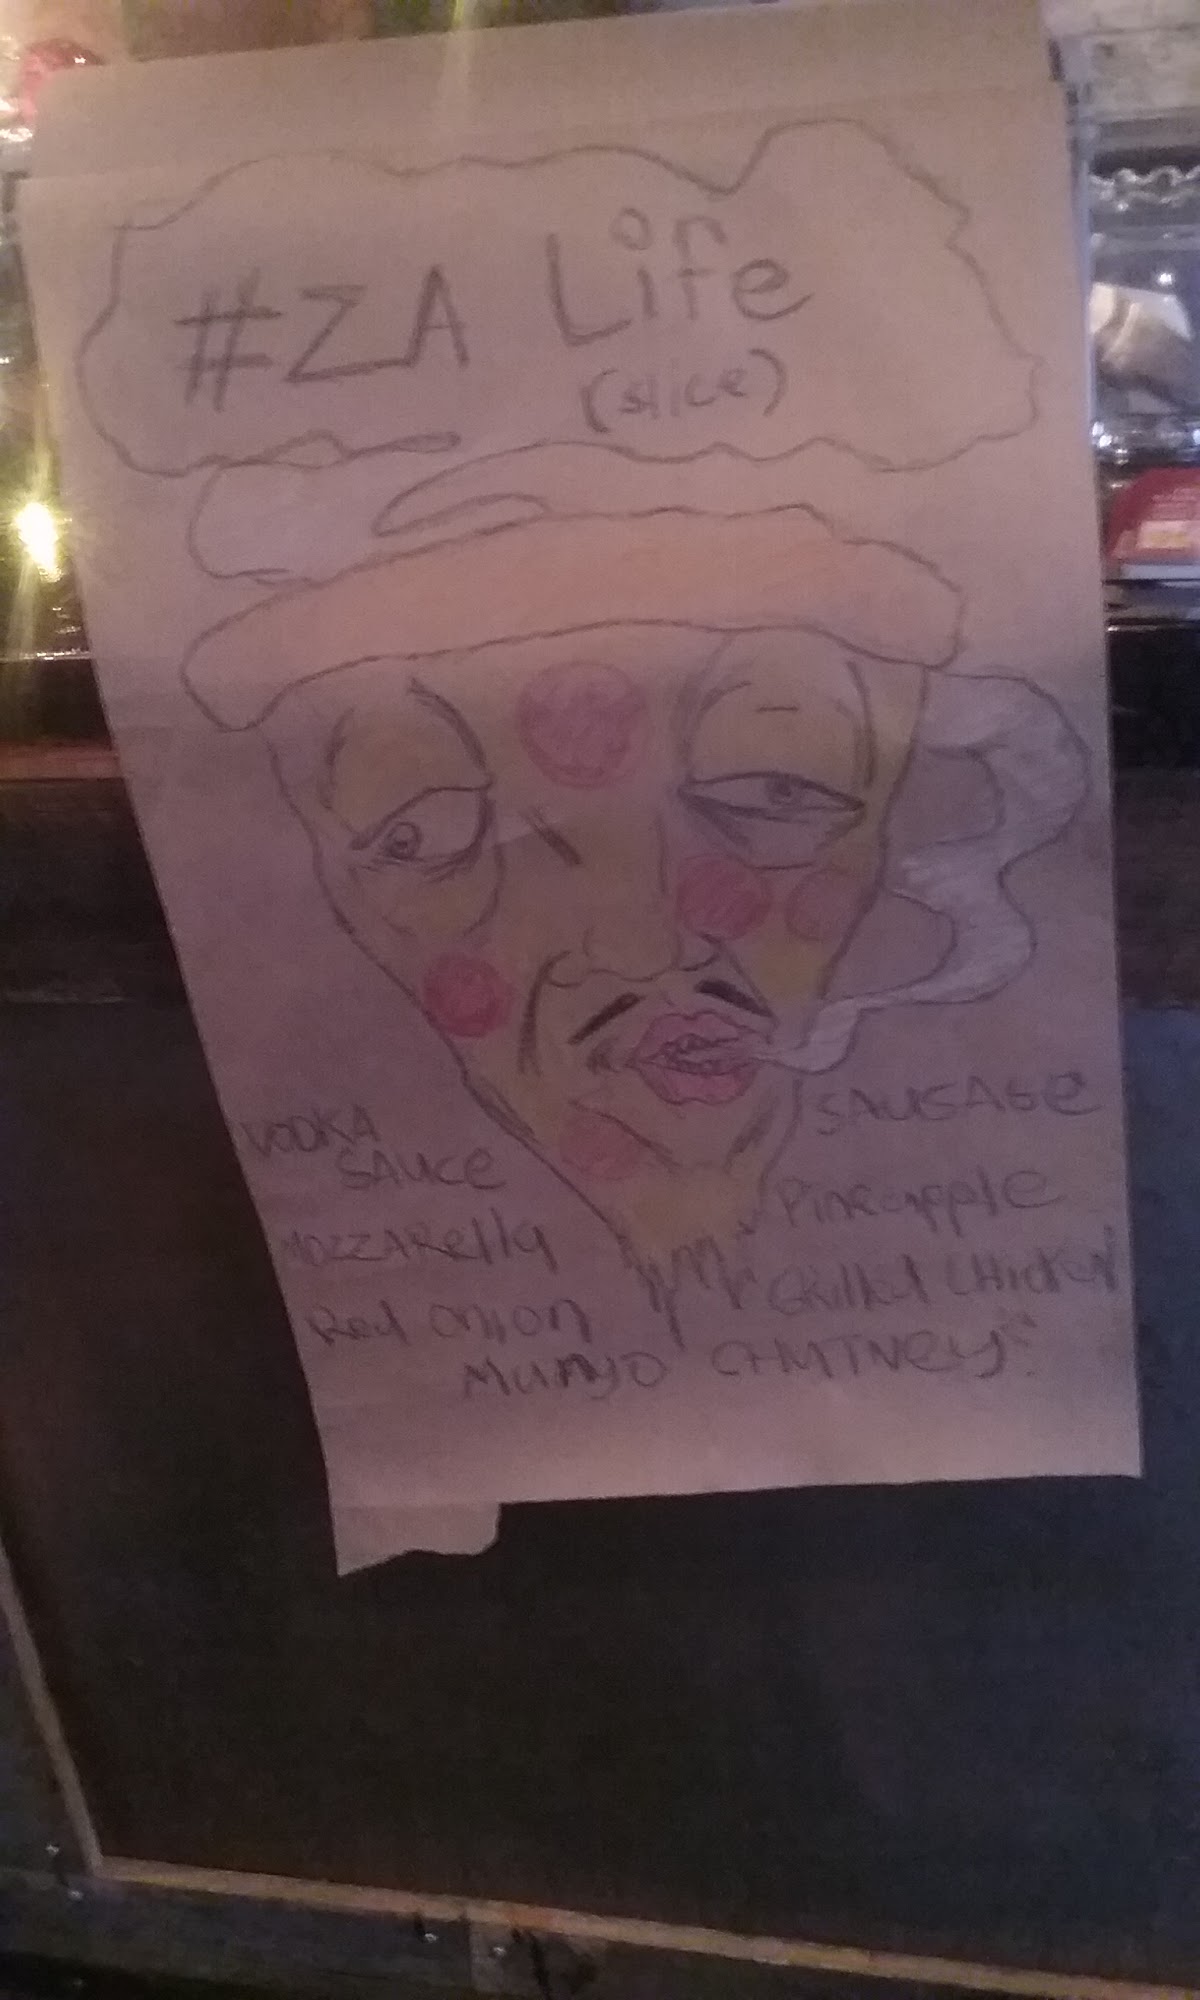 #ZA Life
(slice)
VODKA
SAUCE
MOZZARella
Red Onion
SAUSAGe
Pineapple
GRilled CHicken
CHUTNey